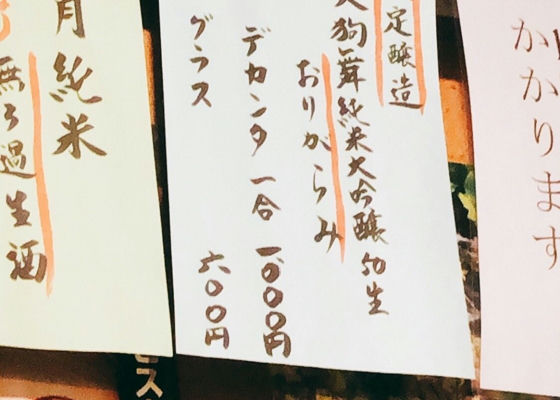 かかります
定醸造
天狗舞純米大吟醸50生
おりがらみ
デカンタ 一合 一、000円
グラス 六00円
月 純米
無ろ過生酒